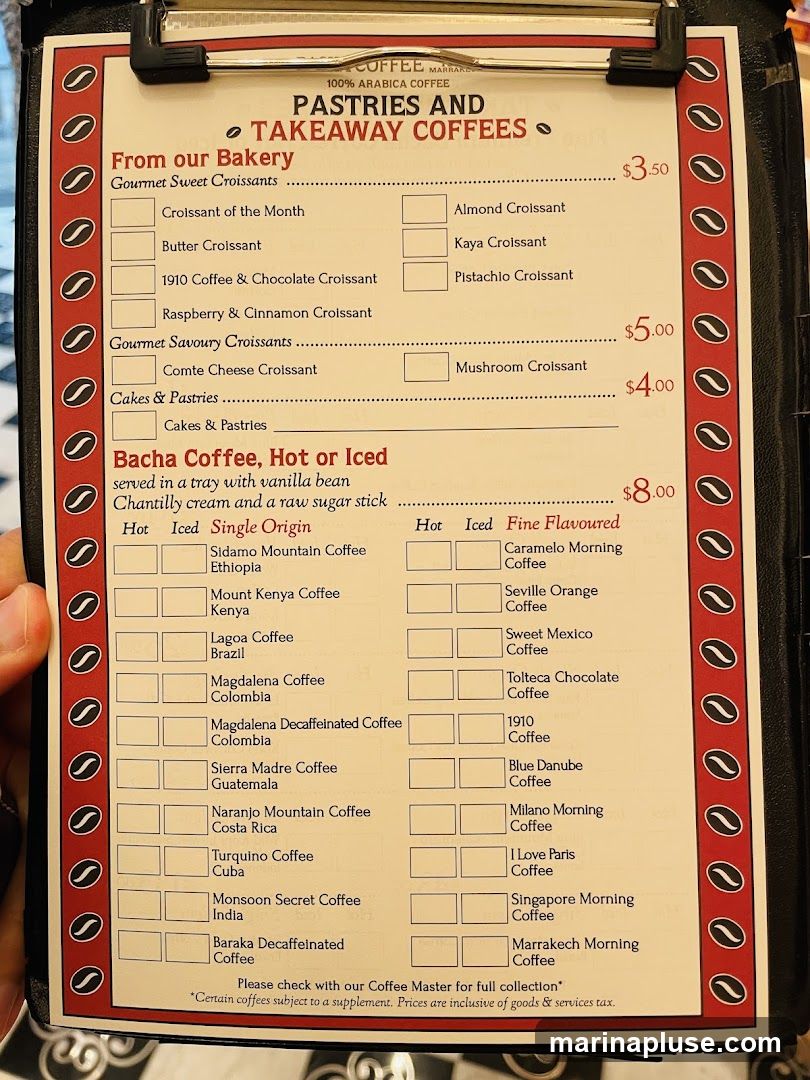 COFFEE
100% ARABICA COFFEE
PASTRIES AND
TAKEAWAY COFFEES
From our Bakery
Gourmet Sweet Croissants ........ $3.50
Croissant of the Month
Almond Croissant
Butter Croissant
Kaya Croissant
1910 Coffee & Chocolate Croissant
Pistachio Croissant
Raspberry & Cinnamon Croissant
Gourmet Savoury Croissants ........ $5.00
Comte Cheese Croissant
Mushroom Croissant
Cakes & Pastries ........ $4.00
Cakes & Pastries
Bacha Coffee, Hot or Iced
served in a tray with vanilla bean
Chantilly cream and a raw sugar stick ........ $8.00
Hot Iced Single Origin
Sidamo Mountain Coffee
Ethiopia
Mount Kenya Coffee
Kenya
Lagoa Coffee
Brazil
Magdalena Coffee
Colombia
Magdalena Decaffeinated Coffee
Colombia
Sierra Madre Coffee
Guatemala
Naranjo Mountain Coffee
Costa Rica
Turquino Coffee
Cuba
Monsoon Secret Coffee
India
Baraka Decaffeinated
Coffee
Hot Iced Fine Flavoured
Caramelo Morning
Coffee
Seville Orange
Coffee
Sweet Mexico
Coffee
Tolteca Chocolate
Coffee
1910
Coffee
Blue Danube
Coffee
Milano Morning
Coffee
I Love Paris
Coffee
Singapore Morning
Coffee
Marrakech Morning
Coffee
Please check with our Coffee Master for full collection*
*Certain coffees subject to a supplement. Prices are inclusive of goods & services tax.
marinapluse.com